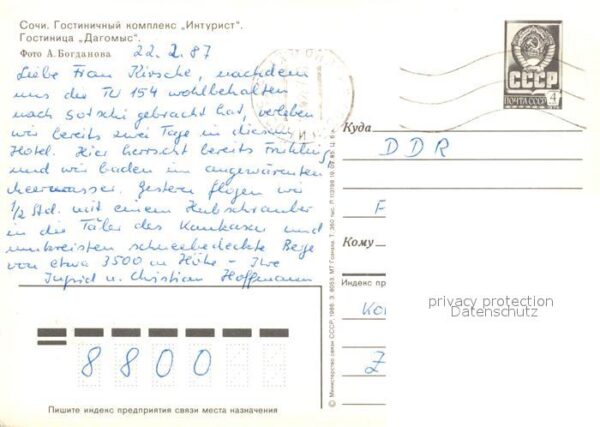 Сочи. Гостиничный комплекс „Интурист".
Гостиница „Дагомыс".
Фото А. Богданова
22.2.87
Liebe Frau Kirsche, nachdem
uns die TU 154 wohlbehalten
nach Sotschi gebracht hat, verleben
wir bereits zwei Tage in diesem
Hotel. Hier herrscht bereits Frühling
und wir baden im angewärmten
Meerwasser. Gestern flogen wir
1/2 Std. mit einem Hubschrauber
in die Täler des Kaukasus und
umkreisten schneebedeckte Berge
von etwa 3500 m Höhe - Ihre
Ingrid u. Christian Hoffmann
СССР
ПОЧТА СССР 4
Куда
DDR
F
Кому
Индекс пр
Ko
Z
privacy protection
Datenschutz
8800
Пишите индекс предприятия связи места назначения
© Министерство связи СССР. 1986. З. 8053. МТ-Гознак.